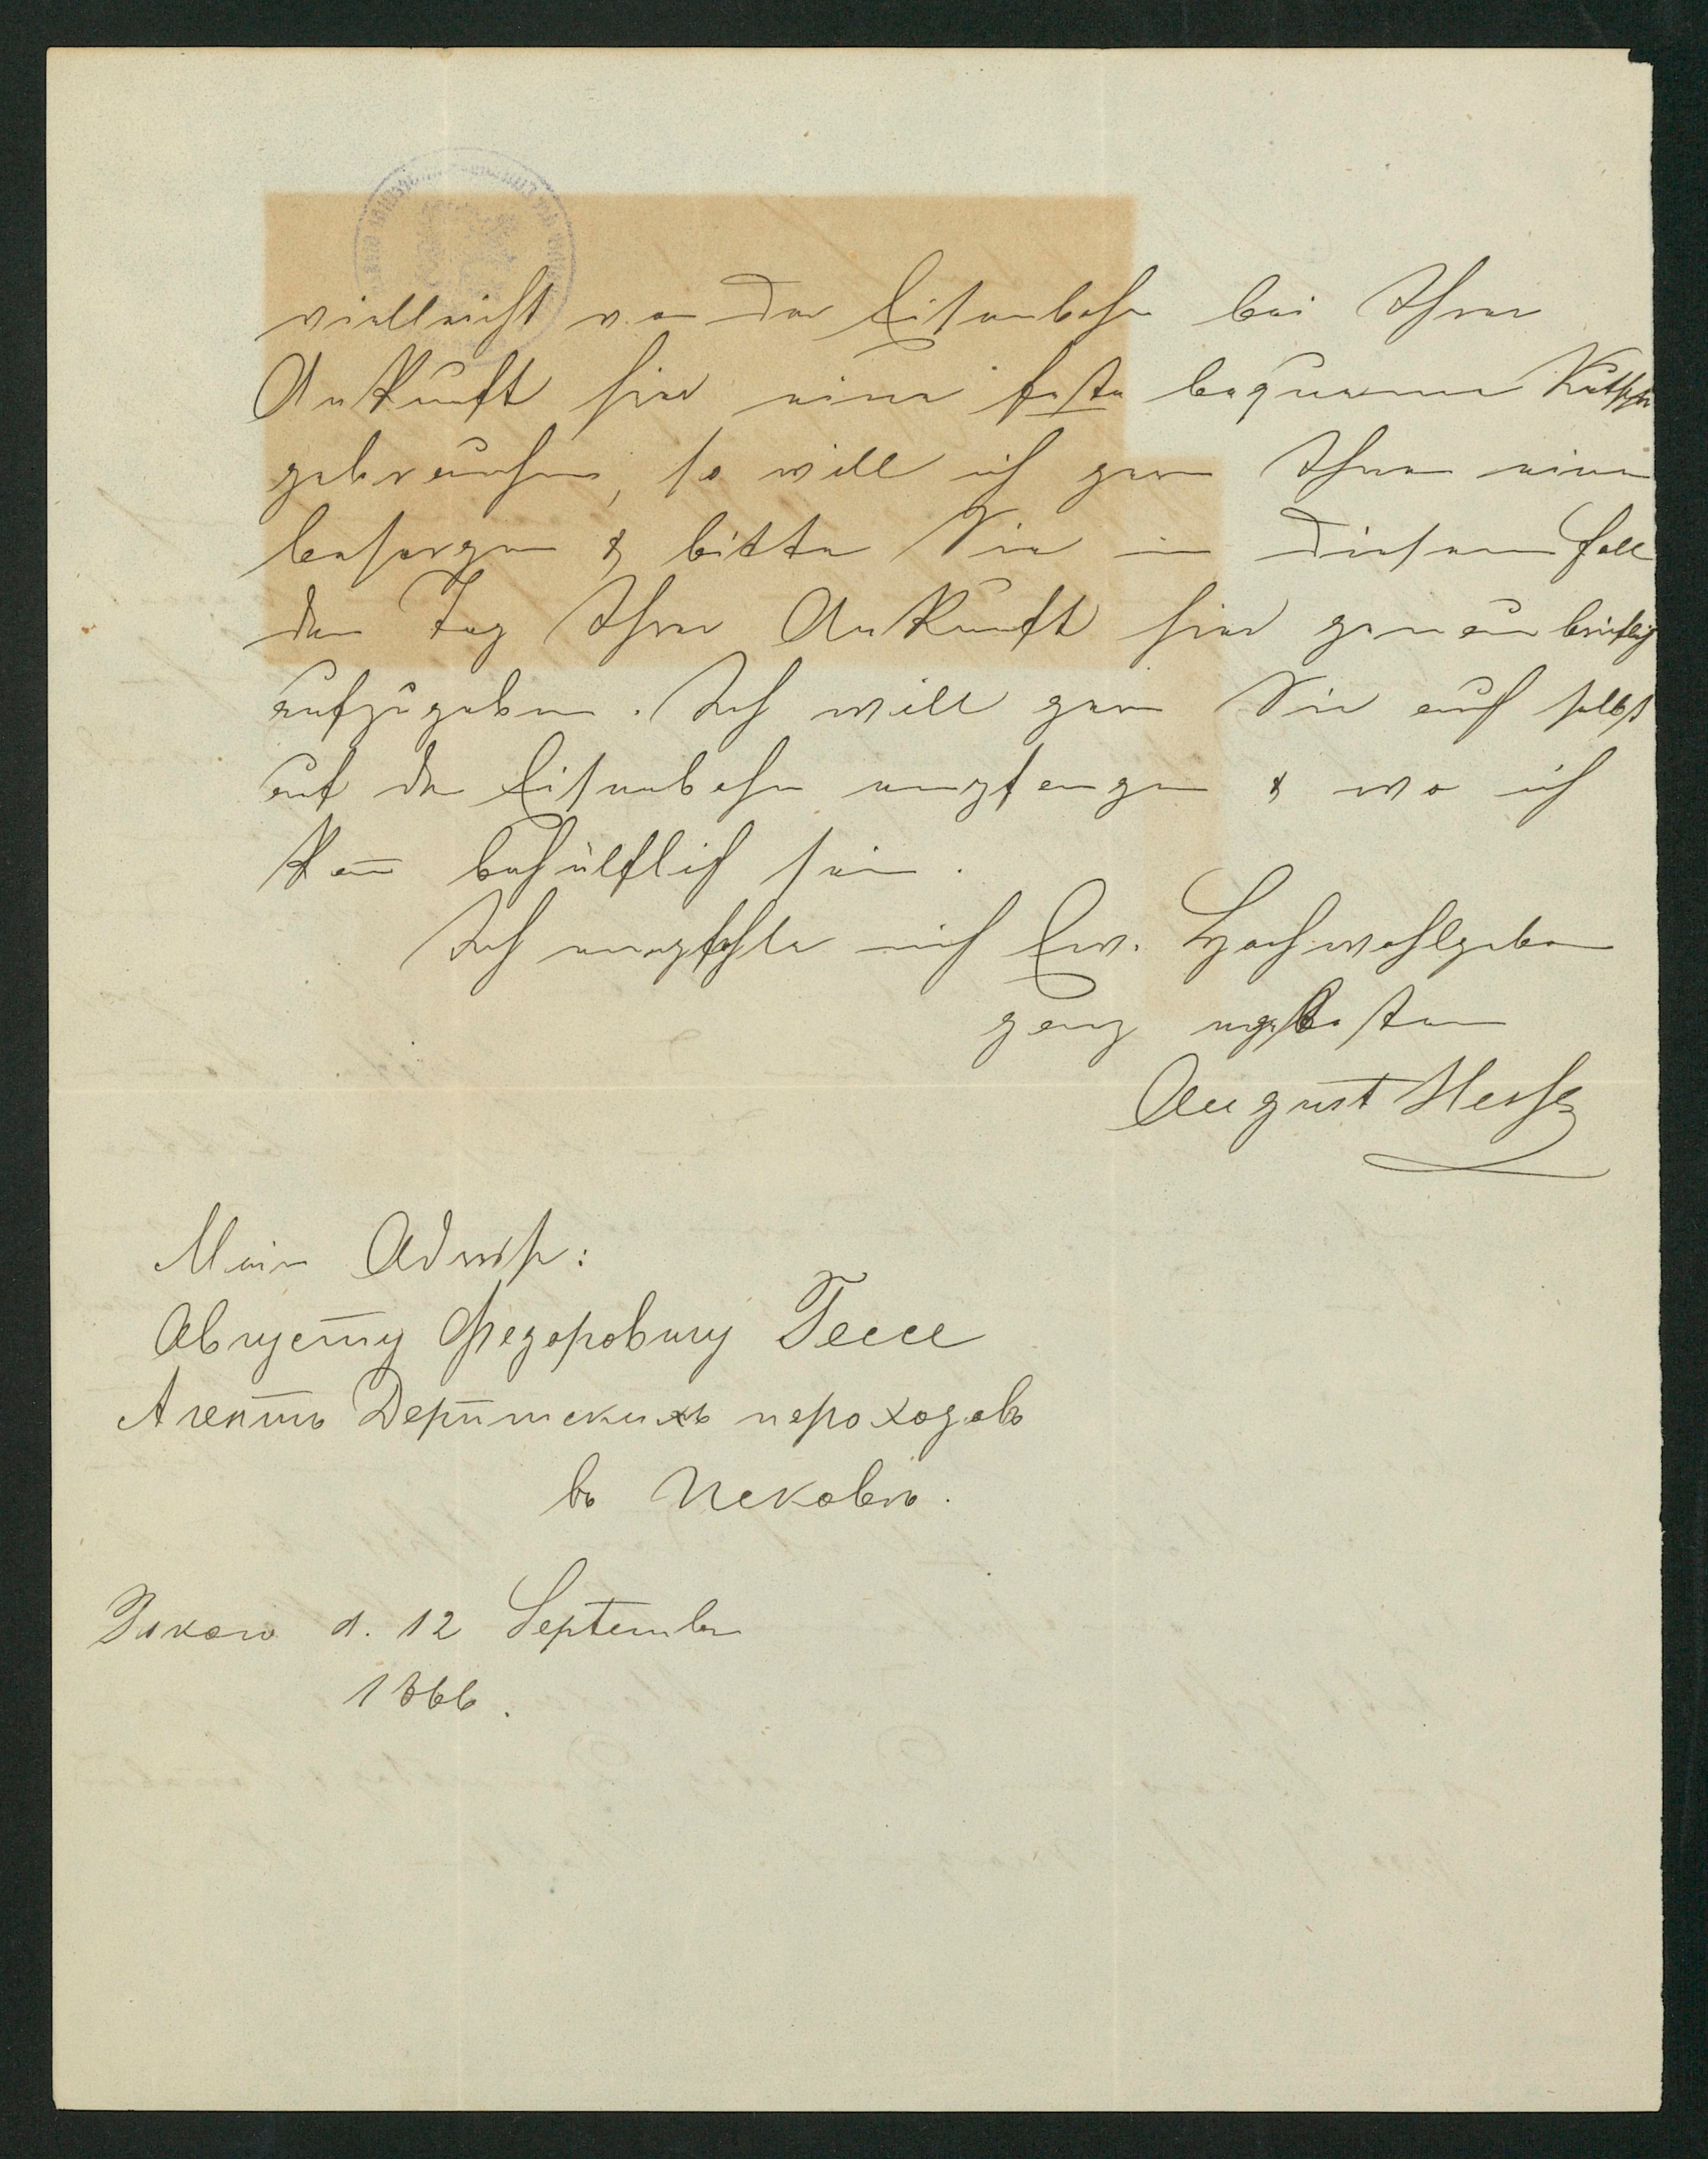 vielleicht von der Eisenbahn bei Ihrer
Ankunft hier eine feste bequeme Kutsche
gebrauchen, so will ich gern Ihnen eine
besorgen & bitte Sie in diesem Fall
den Tag Ihrer Ankunft hier genau brieflich
aufzugeben. Ich will gern Sie auch selbst
auf der Eisenbahn empfangen & wo ich
kann behülflich sein.
Ich empfehle mich Ew. Hochwohlgeboren
ganz ergebenst
August Hesse
Meine Adresse:
Августу Федоровичу Гессе
Агентъ Дерптскихъ пароходовъ
въ Псковѣ.
Pskow d. 12 September
1866.